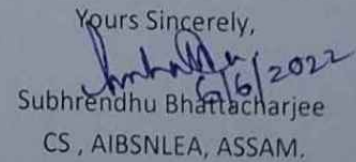 Yours Sincerely,
6/6/2022
Subhrendhu Bhattacharjee
CS , AIBSNLEA, ASSAM.